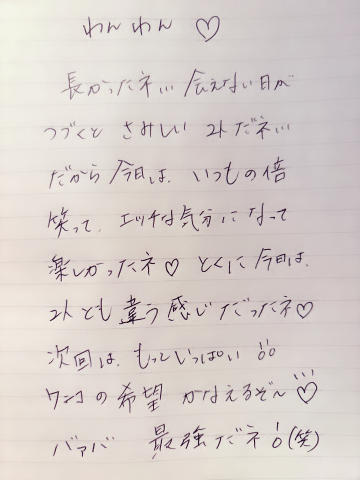 わんわん ♡
長かったネ… 会えない日が
つづくと さみしい コトだネ…
だから 今日は、いつもの倍
笑って、エッチな気分になって
楽しかったネ♡ とくに今日は、
コトとも 違う感じだったネ♡
次回は、もっといっぱい!!
ワンコの希望 かなえるぞ〜♡
バァバ 最強だネ!(笑)